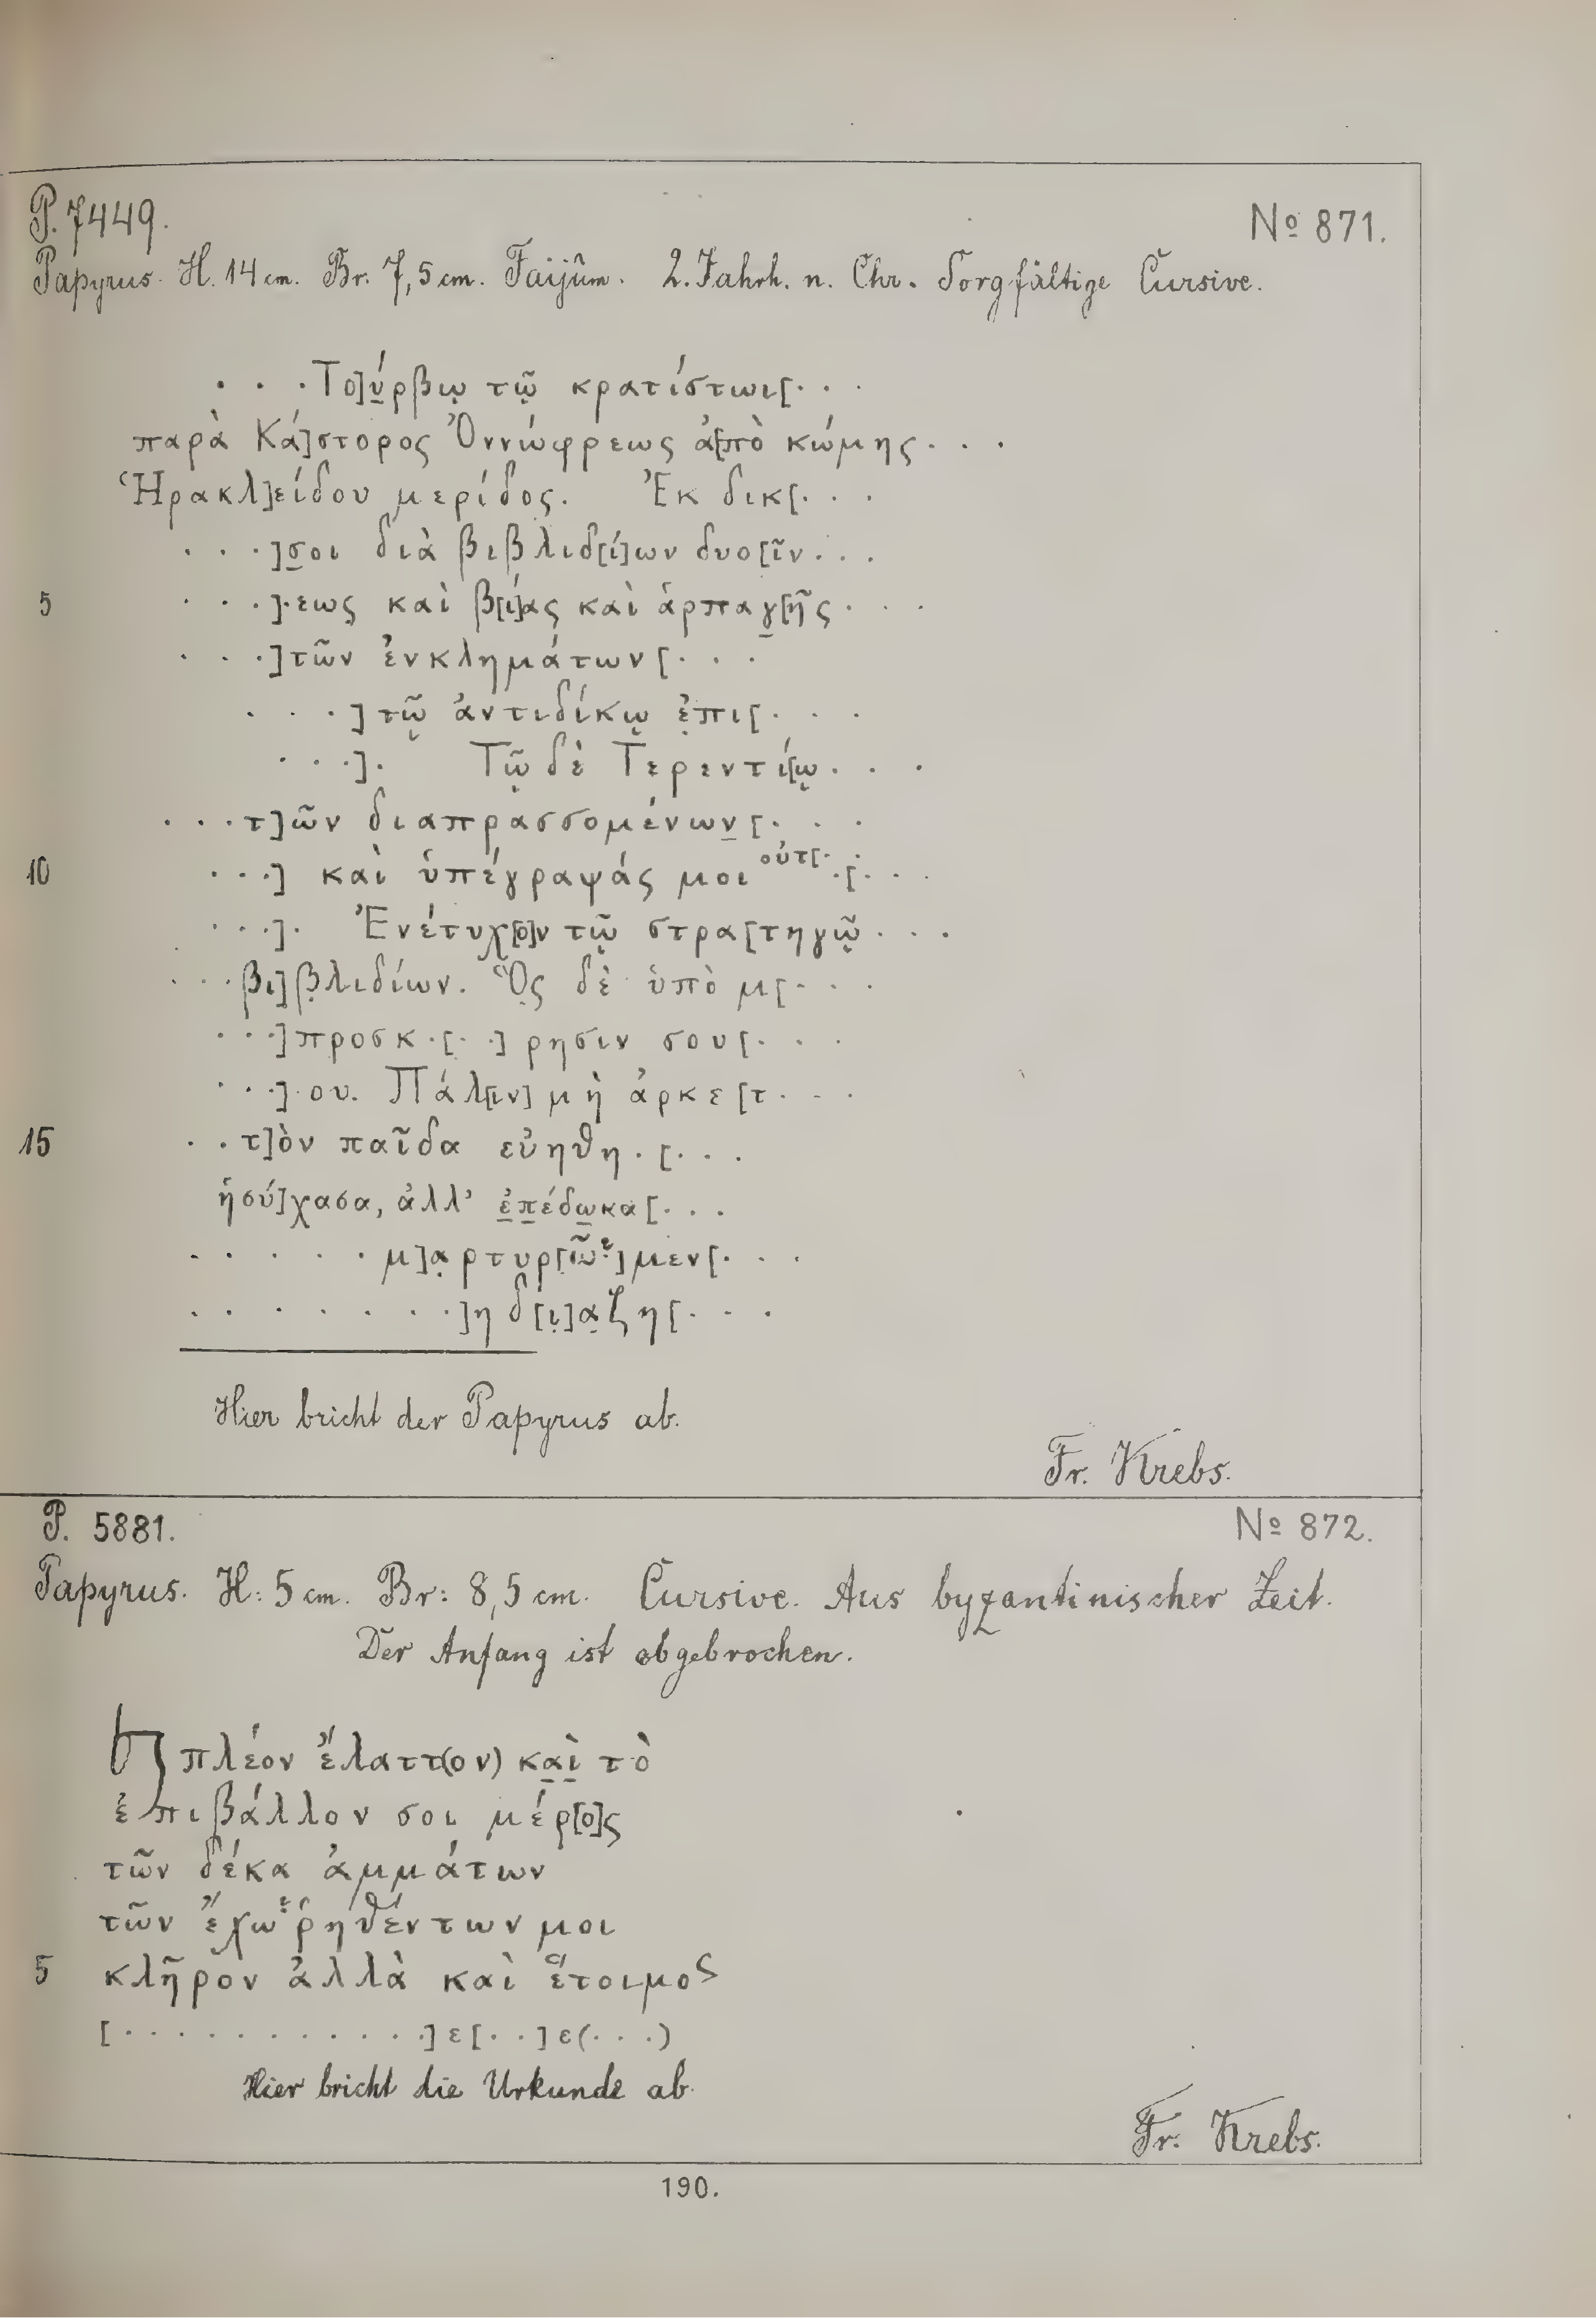 P. 7449.
No 871.
Papyrus. H. 14 cm. Br. 7,5 cm. Faijûm. 2. Jahrh. n. Chr. Sorgfältige Cursive.
· · · Το]ύ̣ρβῳ τῷ κρατίστωι[· · ·
παρὰ Κά]στορος Ὀννώφρεως ἀ[πὸ κώμης · · ·
Ἡρακλ]είδου μερίδος. Ἐκ δικ[· · ·
· · ·]σ̣οι διὰ βιβλιδ[ί]ων δυο[ῖν · · ·
5 · · ·]·εως καὶ β[ί]ας καὶ ἁρπαγ̣[ῆς · · ·
· · ·]τῶν ἐνκλημάτων[· · ·
· · ·] τῷ ἀντιδίκῳ ἐ̣πι[· · ·
· · ·]. Τῷ δὲ Τερεντί[ῳ · · ·
· · · τ]ῶν διαπρασσομένων̣[· · ·
10 · · ·] καὶ ὑπέγραψάς μοι οὑτ[· ·[· · ·
· · ·]. Ἐνέτυχ[ο]ν τῷ στρα[τηγῷ · · ·
· · βι]β̣λιδίων. Ὃ̣ς δὲ ὑπὸ μ[· · ·
· · ·]προσκ·[· ·]ρησιν σου[· · ·
· · ·]ου. Πάλ[ιν] μὴ ἀρκε[τ · · ·
15 · · τ]ὸν παῖδα εὐηθη·[· · ·
ἡσύ]χασα, ἀλλ’ ἐ̣π̣έδω̣κα[· · ·
· · · · · μ]α̣ρτυρ[ῶ?]μεν[· · ·
· · · · · · ·]η δ[ι̣]α̣ζη[· · ·
Hier bricht der Papyrus ab.
Fr. Krebs.
P. 5881.
No 872.
Papyrus. H: 5 cm. Br: 8,5 cm. Cursive. Aus byzantinischer Zeit.
Der Anfang ist abgebrochen.
πλέον ἔλαττ(ον) κα̣ὶ̣ τὸ
ἐπιβάλλον σοι μέρ[ο]ς
τῶν δέκα ἁμμάτων
τῶν ἔχω? ῥηθέντων μοι
5 κλῆρον ἀλλὰ καὶ ἕτοιμος
[· · · · · · · · · · · ·]ε[· ·]ε(· · ·)
Hier bricht die Urkunde ab.
Fr. Krebs.
190.